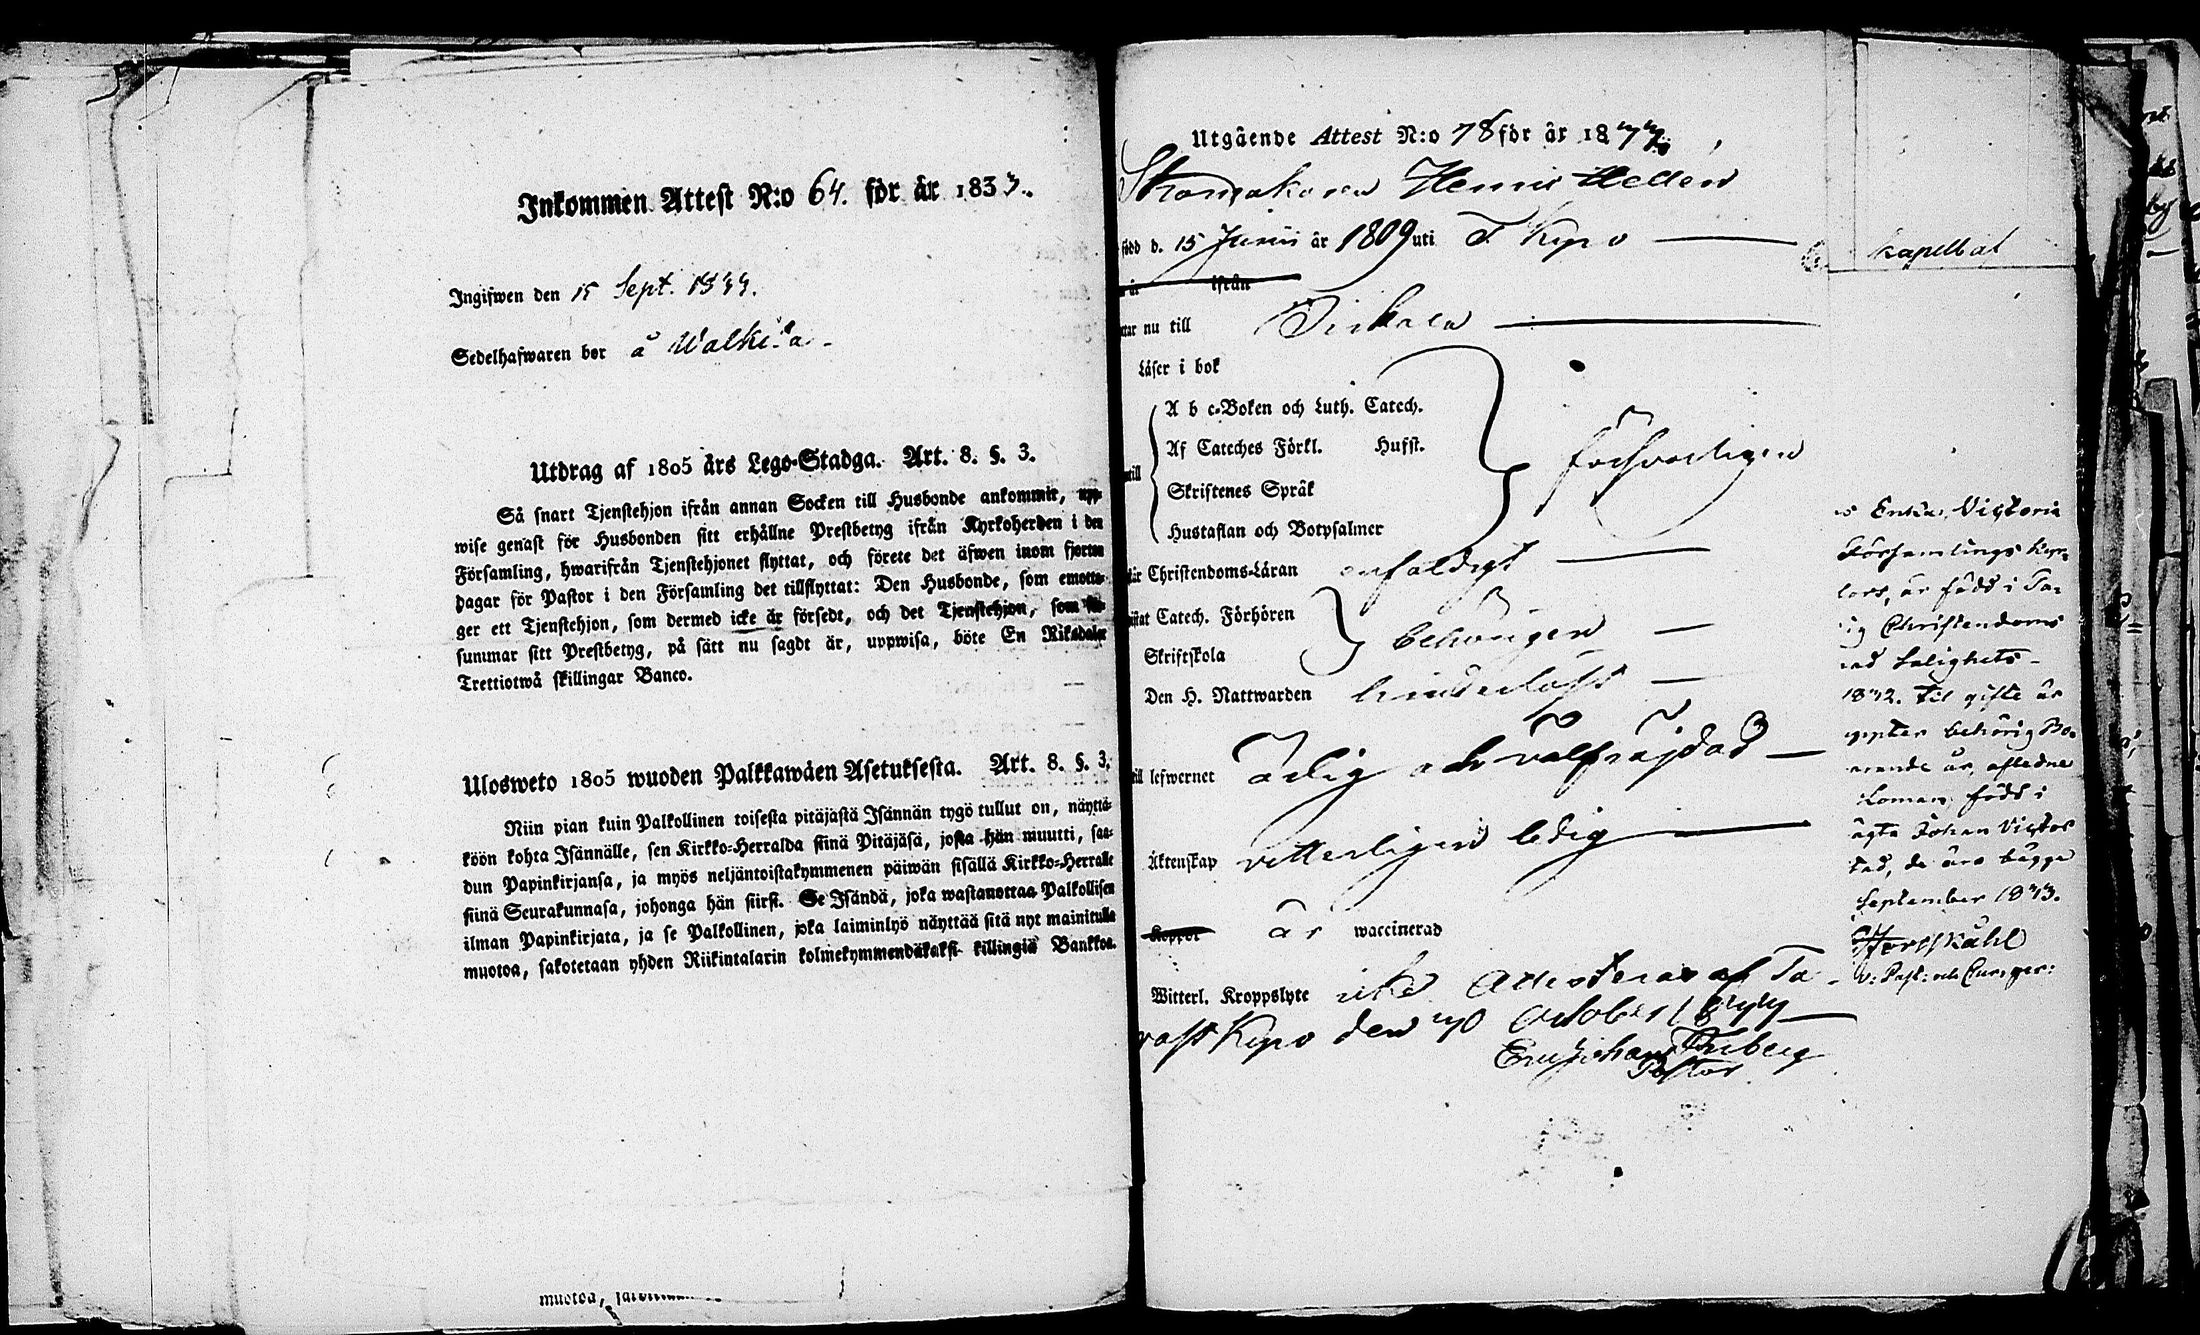 Inkommen Attest N:o 64. för år 1833.
Ingifwen den 15 Sept. 1833.
Sedelhafwaren bor å Walkila.
Utdrag af 1805 års Lego-Stadga. Art. 8. §. 3.
Så snart Tjenstehjon ifrån annan Socken till Husbonde ankommit, upp-
wise genast för Husbonden sitt erhållne Prestbetyg ifrån Kyrkoherden i den
Församling, hwarifrån Tjenstehjonet flyttat, och förete det äfwen inom fjorton
dagar för Pastor i den Församling det tillflyttat: Den Husbonde, som emotta-
ger ett Tjenstehjon, som dermed icke är försedt, och det Tjenstehjon, som för-
summar sitt Prestbetyg, på sätt nu sagdt är, uppwisa, böte En Riksdaler
Trettiotwå skillingar Banco.
Ulosweto 1805 wuoden Palkkawäen Asetuksesta. Art. 8. §. 3.
Niin pian kuin Palkollinen toisesta pitäjästä Isännän tygö tullut on, näyttä-
köön kohta Isännälle, sen Kirkko-Herralda siinä Pitäjäsä, josta hän muutti, saa-
dun Papinkirjansa, ja myös neljäntoistakymmenen päiwän sisällä Kirkko-Herralle
siinä Seurakunnasa, johonga hän siirst. Se Isändä, joka wastanottaa Palkollisen
ilman Papinkirjata, ja se Palkollinen, joka laiminlyö näyttää sitä nyt mainitulla
muotoa, sakotetaan yhden Riikintalarin kolmekymmendäkaksi killingiä Bankkoa.
muotoa,
Utgående Attest N:o 78 för år 1833.
Henric Hellen
född d. 15 Junii år 1809 uti T. Kyro
år ifrån
nu till Birkala
Läser i bok
A b c-Boken och Luth. Catech.
Af Cateches Förkl. Husst.
till försvarligen
Skriftenes Språk
Hustaflan och Botpsalmer
Christendoms-Läran enfaldigt
Catech. Förhören
behörigen
Skriftskola
Den H. Nattwarden hinderlöst
till lefwernet ärlig och välfräjdad
Äktenskap vetterligen ledig
Koppor är waccinerad
Witterl. Kroppslyte icke Attesteras af Ta-
vast Kyro den 30 October 1833
Thuberg
Pastor
kapellat
Enkan Victoria
Församlings Kyr-
lors, är född i Ta-
ig Christendoms
Salighets-
1832. Til gifte är
behörig Bo-
är, aflednes
Loman, född i
ägta Johan Victor
tad, de äro bägge
September 1833.
Forsskåhl
v: Past: och